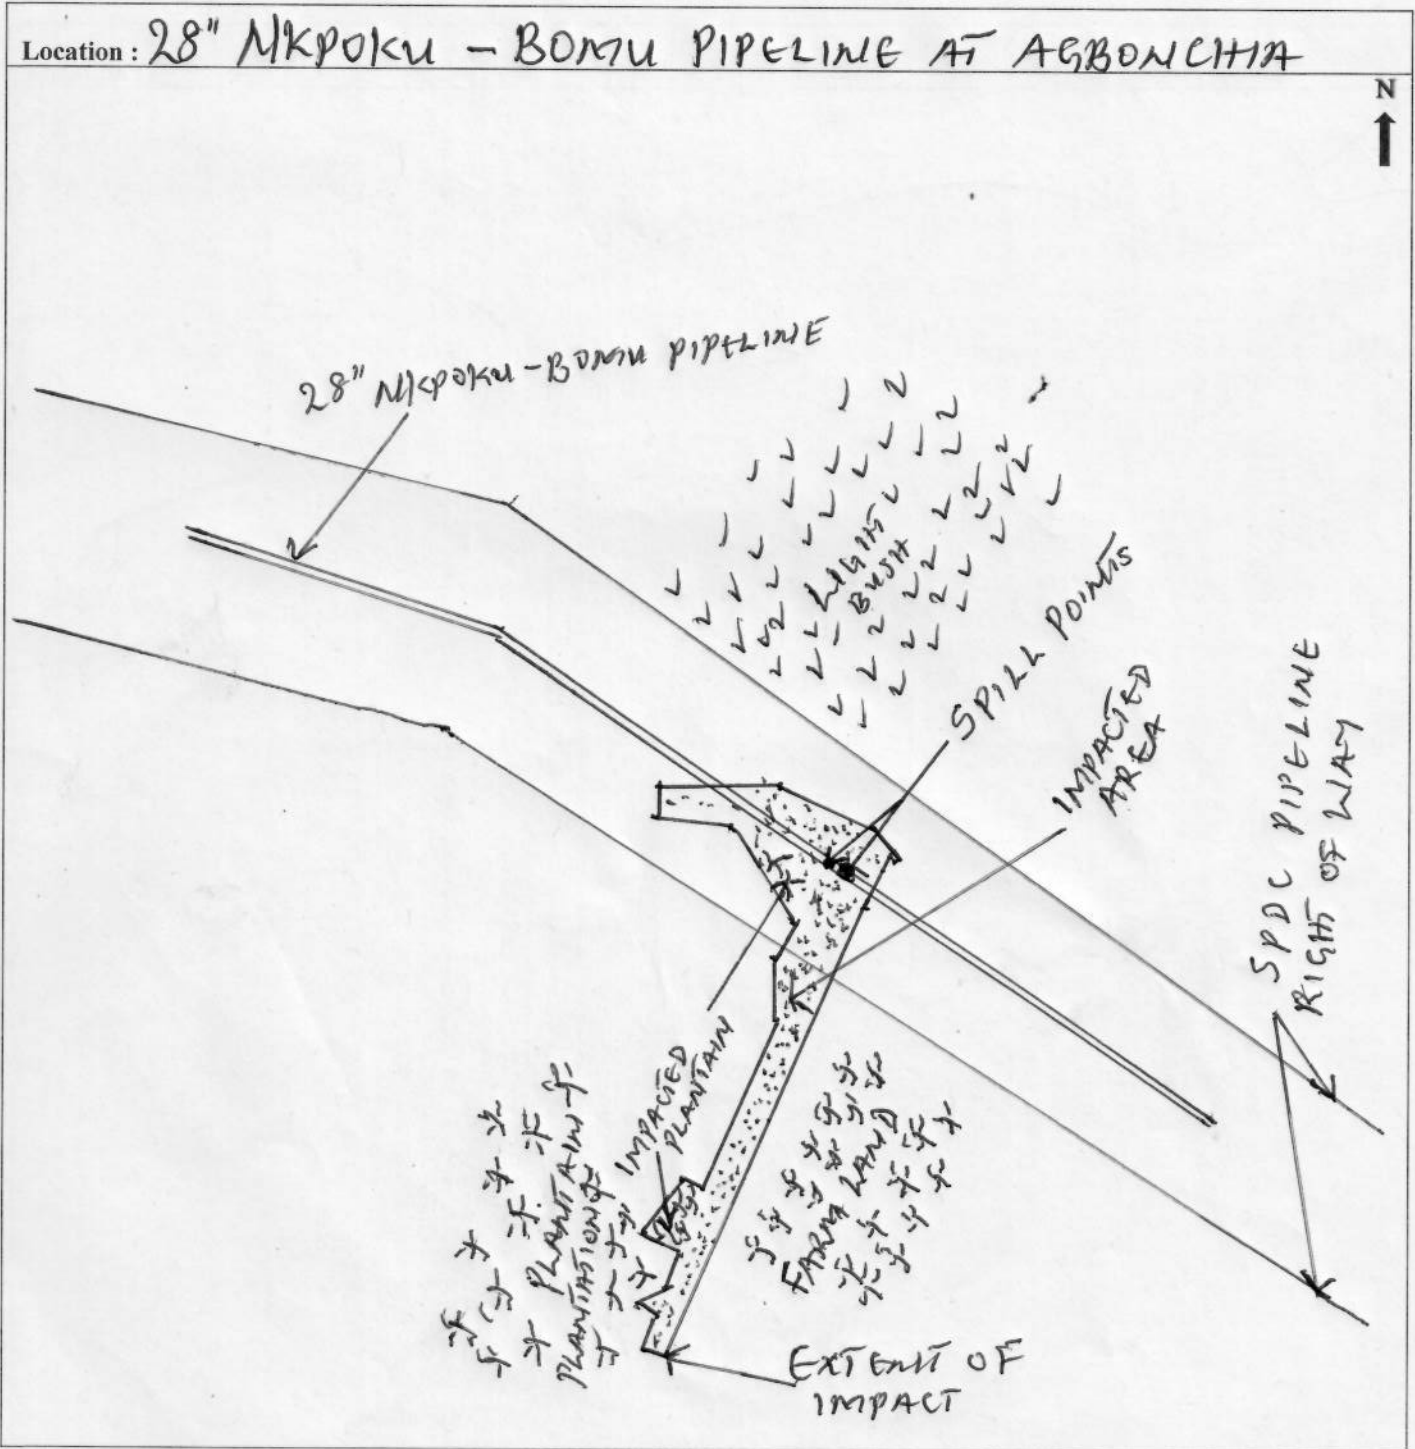 Location : 28" NKPOKU - BOMU PIPELINE AT AGBONCHIA
N
28" NKPOKU-BOMU PIPELINE
LIGHT
BUSH
SPILL POINTS
IMPACTED
AREA
SPDC PIPELINE
RIGHT OF WAY
IMPACTED
PLANTAIN
PLANTAIN
PLANTATION
FARM LAND
EXTENT OF
IMPACT